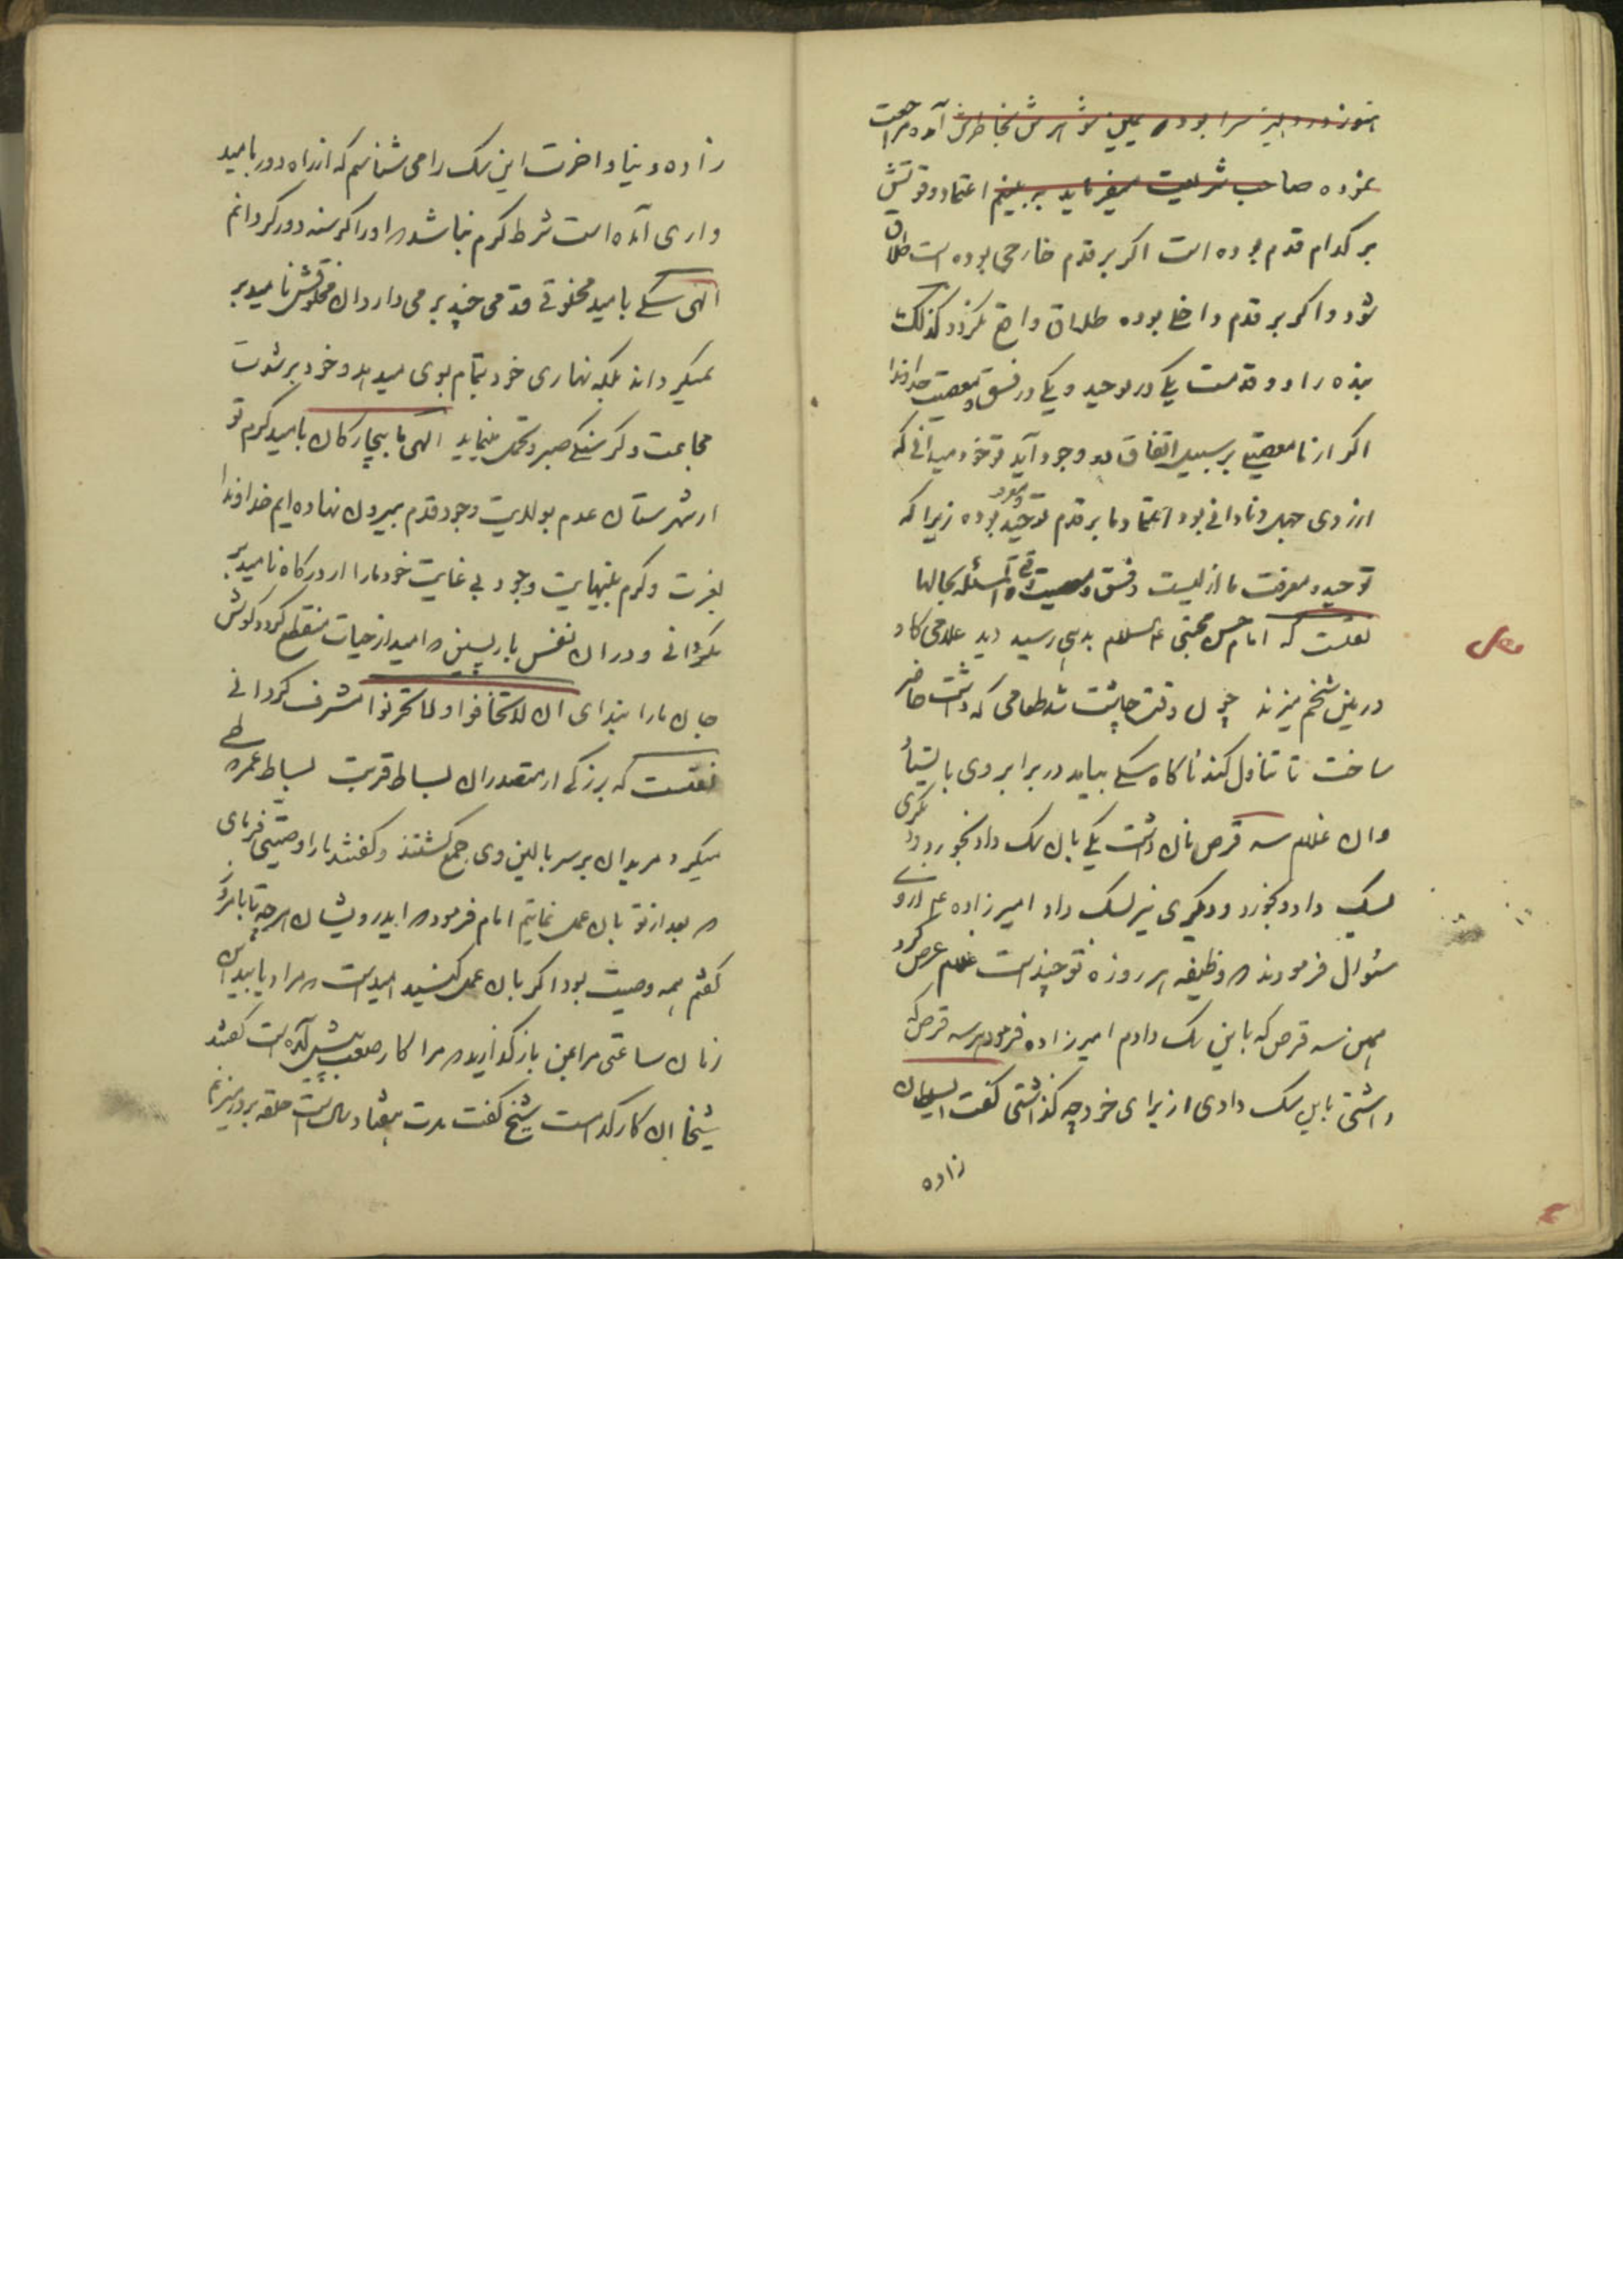 هنوز در دهلیز سرا بوده یمین شوهرش بخاطرش آمد مراجعت
نموده صاحب شریعت میفرماید به بینیم اعتماد وقوتش
بر کدام قدم بوده است اکر بر قدم خارجی بوده است طلاق
شود و اکر بر قدم داخلی بوده طلاق واقع نکردد کذلک
بنده را دو قدمست یکی در توحید و یکی در فسق و معصیت خداوندا
اکر از ما معصیتی بر سبیل اتفاق بوجود آید تو خود میدانی که
از روی جهل و نادانی بود اعتماد ما بر قدم توحید بوده زیرا که
توحید و معرفت ما ازلیست و فسق و معصیت المسئله بحالها
نقلست که امام حسن مجتبی ع السلام بدهی رسید دید غلامی کاو
در زمین شخم میزند چون وقت چاشت شد طعامی که داشت حاضر
ساخت تا تناول کند ناکاه سکی بیامد در برابر وی بایستاد
وان غلام سه قرص نان داشت یکی بان سک داد بخورد دیکری
بسک داد و بخورد و دیکری نیز بسک داد امیرزاده ع از وی
سئوال فرمودند که وظیفه هر روزه تو چند است غلام عرض کرد
همین سه قرص که باین سک دادم امیرزاده فرمود هر سه قرص که
داشتی باین سک دادی از برای خود چه کذاشتی کفت ای سلطان
زاده
زاده دنیا و اخرت این سک را می شناسم که از راه دور بامید
واری آمده است شرط کرم نباشد که او را کرسنه دور کردانم
الهی سکی بامید مخلوقی قدمی چند بر می دارد ان مخلوقش ناامید بر
نمیکرداند بلکه نهاری خود بتمام بوی میدهد و خود بر شدت
مجاعت و کرسنکی صبر و تحمل مینماید الهی ما بیچارکان بامید کرم تو
از شهرستان عدم بولایت وجود قدم بیرون نهاده ایم خداوندا
بعزت و کرم بینهایت وجود بی غایت خود ما را از درکاه ناامید بر
نکردانی و در ان نفس بازپسین که امید از حیات منقطع کردد کوش
جان ما را بندای ان لا تخافوا و لا تحزنوا مشرف کردانی
نقلست که بزرکی از متصدران بساط قربت بساط عمر طی
میکرد مریدان بر سر بالین وی جمع کشتند و کفتند ما را وصیتی فرمای
که بعد از تو بان عمل نمائیم امام فرمود که ایدرویشان هر چه تا بامروز
کفتم همه وصیت بود اکر بان عمل کنید امید است که مراد یابید این
زمان ساعتی مرا بمن باز کذارید که مرا کار صعب پیش آمده است کفتند
شیخا ان کار کدامست شیخ کفت مدت هفتاد سال است حلقه بر در میزنم